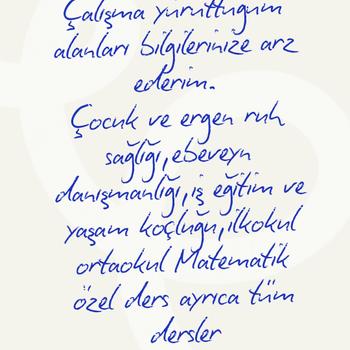 Çalışma yürüttüğüm
alanları bilgilerinize arz
ederim.
Çocuk ve ergen ruh
sağlığı,ebeveyn
danışmanlığı,iş eğitim ve
yaşam koçluğu,ilkokul
ortaokul Matematik
özel ders ayrıca tüm
dersler